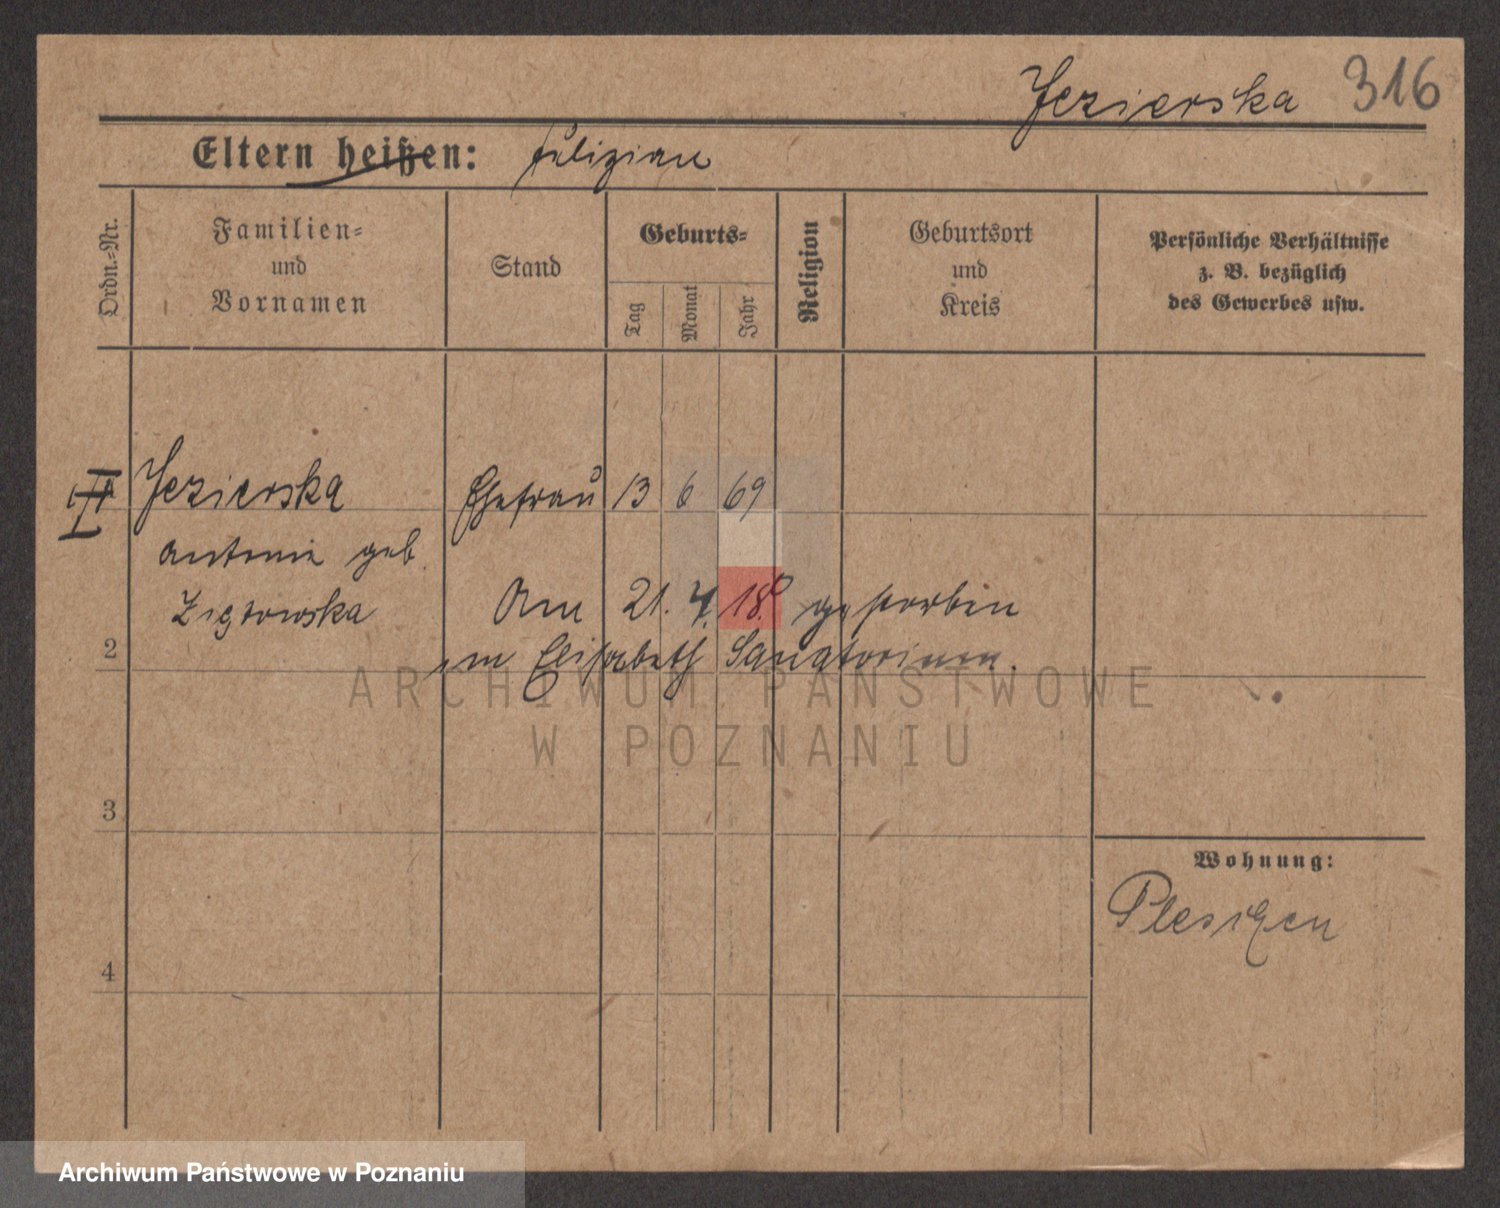 Jezierska 316
Eltern heißen:
Ordn.-Nr.
Familien-
und
Vornamen
Stand
Geburts-
Tag
Monat
Jahr
Religion
Geburtsort
und
Kreis
Persönliche Verhältnisse
z. B. bezüglich
des Gewerbes usw.
Jezierska Ehefrau 13 6 69
Antonie geb.
Am 21. 4. 18. gestorben
2
im Elisabeth Sanatorium.
ARCHIWUM PAŃSTWOWE
W POZNANIU
3
Wohnung:
Pleschen
4
Archiwum Państwowe w Poznaniu